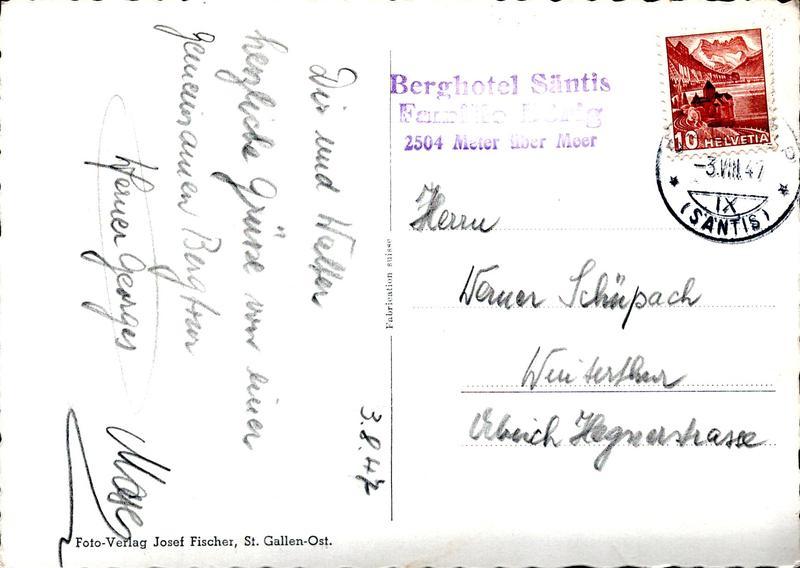 3.8.47
Dir und Walter
herzliche Grüsse von einer
gemeinsamen Bergtour
Werner Georges
Berghotel Säntis
Familie
2504 Meter über Meer
10 HELVETIA
-3.VIII.47
IX
(SÄNTIS)
Herrn
Werner Schüpach
Winterthur
Ulrich Hegnerstrasse
Fabrication suisse
Foto-Verlag Josef Fischer, St. Gallen-Ost.